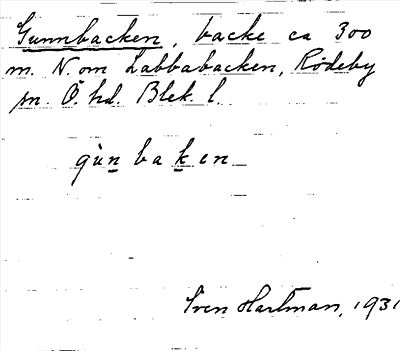 Gunnbacken, backe ca 300
m. N. om Labbabacken, Rödeby
sn. Ö. hd. Blek. l.
gùn̲ ba k̲ en
Sven Hartman, 1931